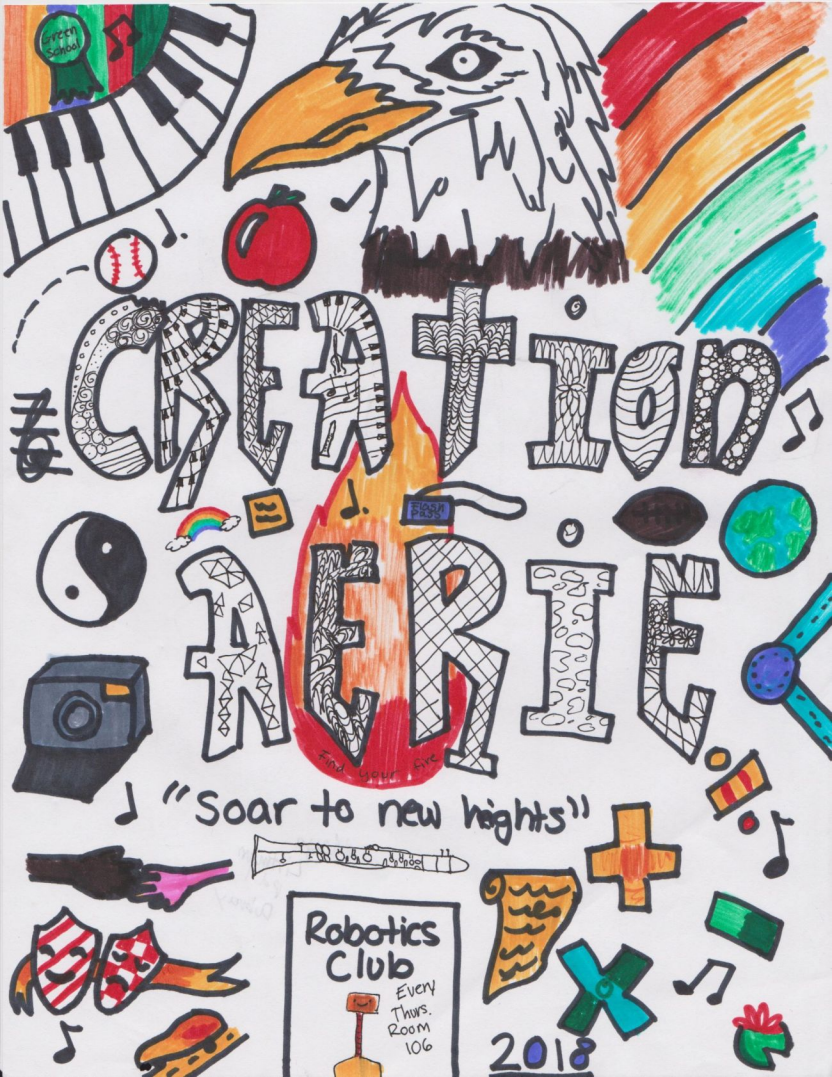 Green
School
CREATION
FLASH
PASS
AERIE
Find your fire
"Soar to new heights"
Robotics
Club
Every
Thurs.
Room
106
2018